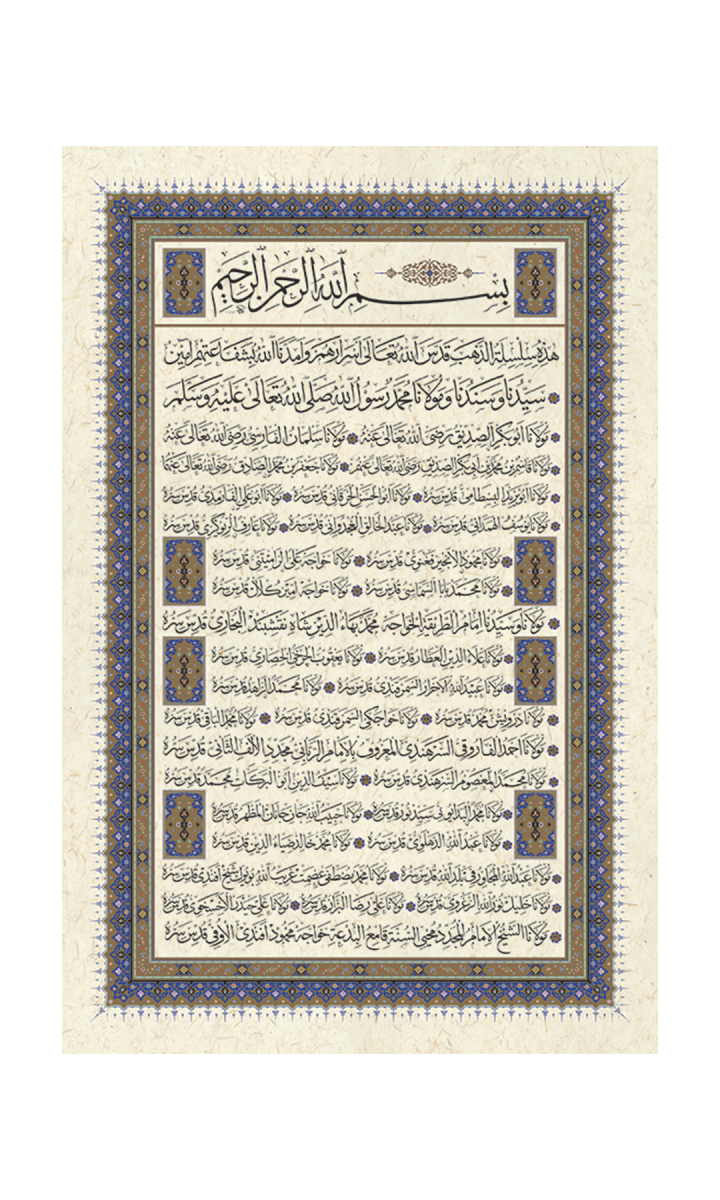 بسم الله الرحمن الرحيم
هذه سلسلة الذهب قدس الله تعالى أسرارهم وأمدنا الله بشفاعتهم آمين
سيدنا وسندنا ومولانا محمد رسول الله صلى الله تعالى عليه وسلم
مولانا أبو بكر الصديق رضي الله تعالى عنه مولانا سلمان الفارسي رضي الله تعالى عنه
مولانا قاسم بن محمد بن أبي بكر الصديق رضي الله تعالى عنهم مولانا جعفر بن محمد الصادق رضي الله تعالى عنهما
مولانا أبو يزيد البسطامي قدس سره مولانا أبو الحسن الخرقاني قدس سره مولانا أبو علي الفارمدي قدس سره
مولانا يوسف الهمداني قدس سره مولانا عبد الخالق الغجدواني قدس سره مولانا عارف الريوگري قدس سره
مولانا محمود الإنجير فغنوي قدس سره مولانا خواجه علي الراميتني قدس سره
مولانا محمد بابا السماسي قدس سره مولانا خواجه أمير كلال قدس سره
مولانا وسيدنا إمام الطريقة الخواجه محمد بهاء الدين شاه نقشبند البخاري قدس سره
مولانا علاء الدين العطار قدس سره مولانا يعقوب الجرخي الحصاري قدس سره
مولانا عبيد الله الأحرار السمرقندي قدس سره مولانا محمد الزاهد قدس سره
مولانا درويش محمد قدس سره مولانا خواجكي السمرقندي قدس سره مولانا محمد الباقي قدس سره
مولانا أحمد الفاروقي السرهندي المعروف بالإمام الرباني مجدد الألف الثاني قدس سره
مولانا محمد المعصوم السرهندي قدس سره مولانا سيف الدين أبو البركات محمد قدس سره
مولانا محمد البدايوني سيد نور قدس سره مولانا حبيب الله جان جانان المظهر قدس سره
مولانا عبد الله الدهلوي قدس سره مولانا محمد خالد ضياء الدين قدس سره
مولانا عبد الله المجاور في بلد الله قدس سره مولانا محمد مصطفى عصمت غريب الله شيخ أفندي قدس سره
مولانا خليل نور الله الزغروي قدس سره مولانا علي رضا البزاز قدس سره مولانا علي حيدر الأخسخوي قدس سره
مولانا الشيخ الإمام المجدد محيي السنة قامع البدعة خواجه محمود أفندي الأوفي قدس سره